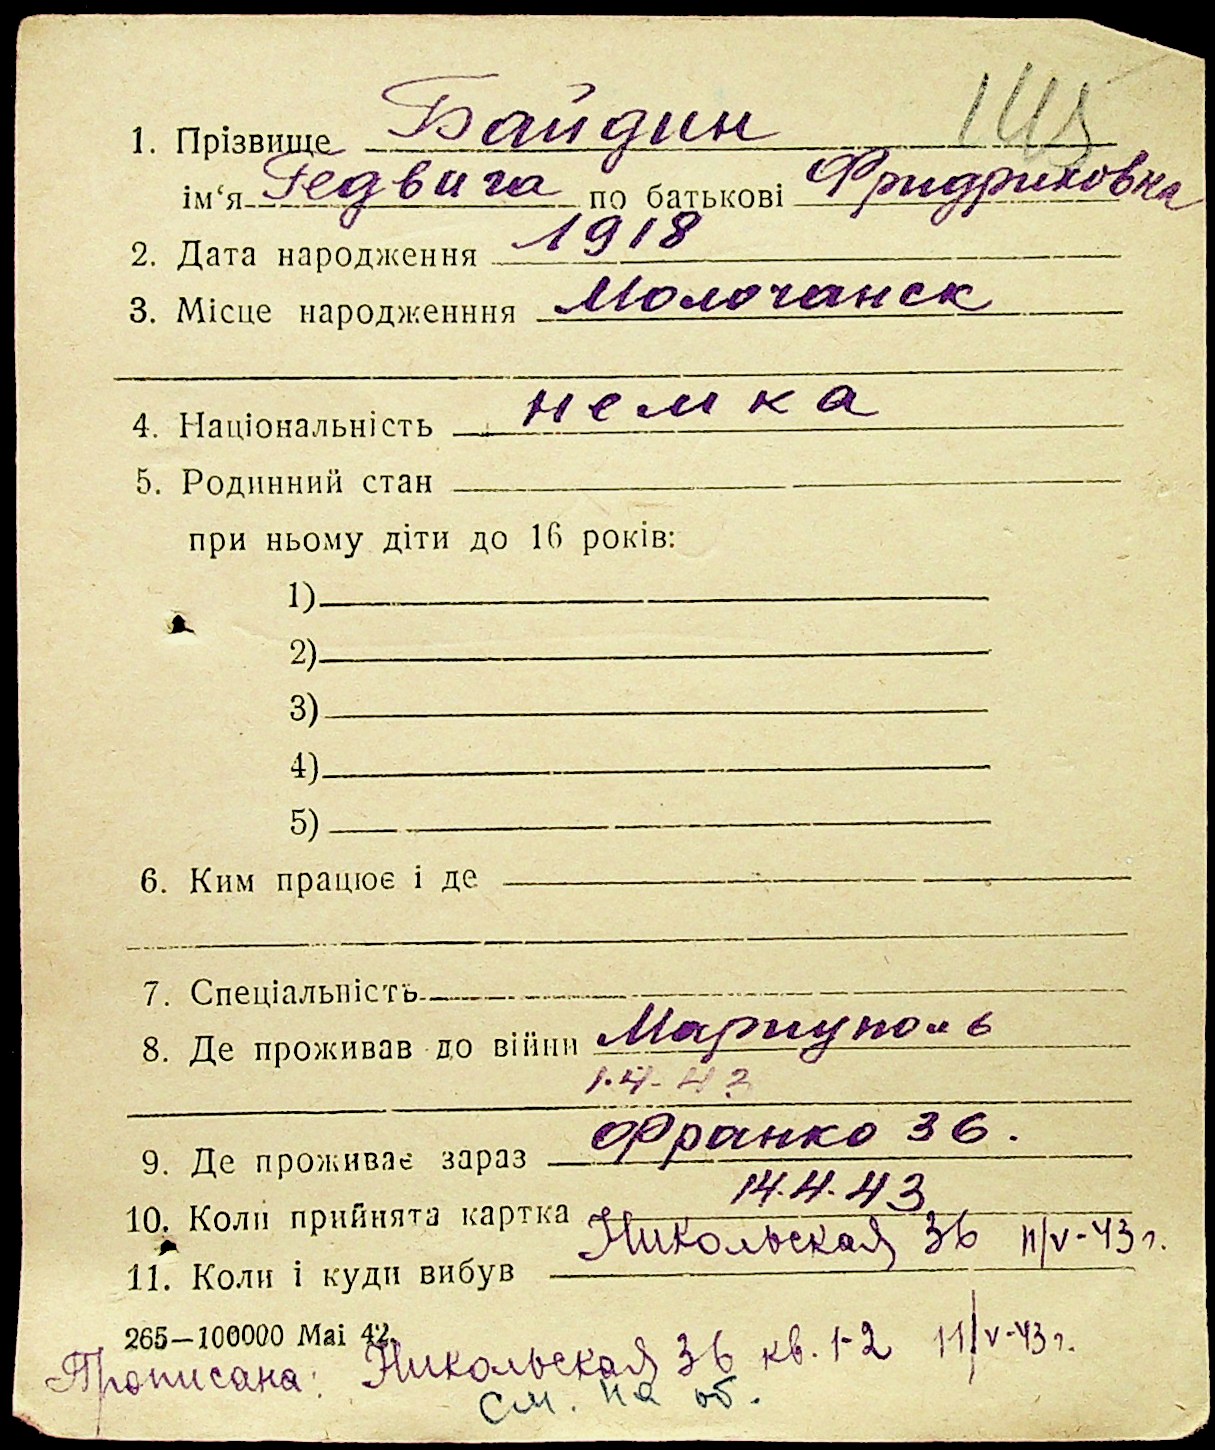 1. Прізвище Байдин
ім‘я Гедвига по батькові Фридриховна
2. Дата народження 1918
3. Місце народженння Молочанск
4. Національність немка
5. Родинний стан
при ньому діти до 16 років:
1)
2)
3)
4)
5)
6. Ким працює і де
7. Спеціальність
8. Де проживав до війни Мариуполь
1.4-43
9. Де проживає зараз Франко 36.
10. Коли прийнята картка 14.4.43
11. Коли і куди вибув Никольская 36 11/V-43 г.
265—100000 Mai 42.
Прописана: Никольская 36 кв. 1-2 11/V-43 г.
См. на об.